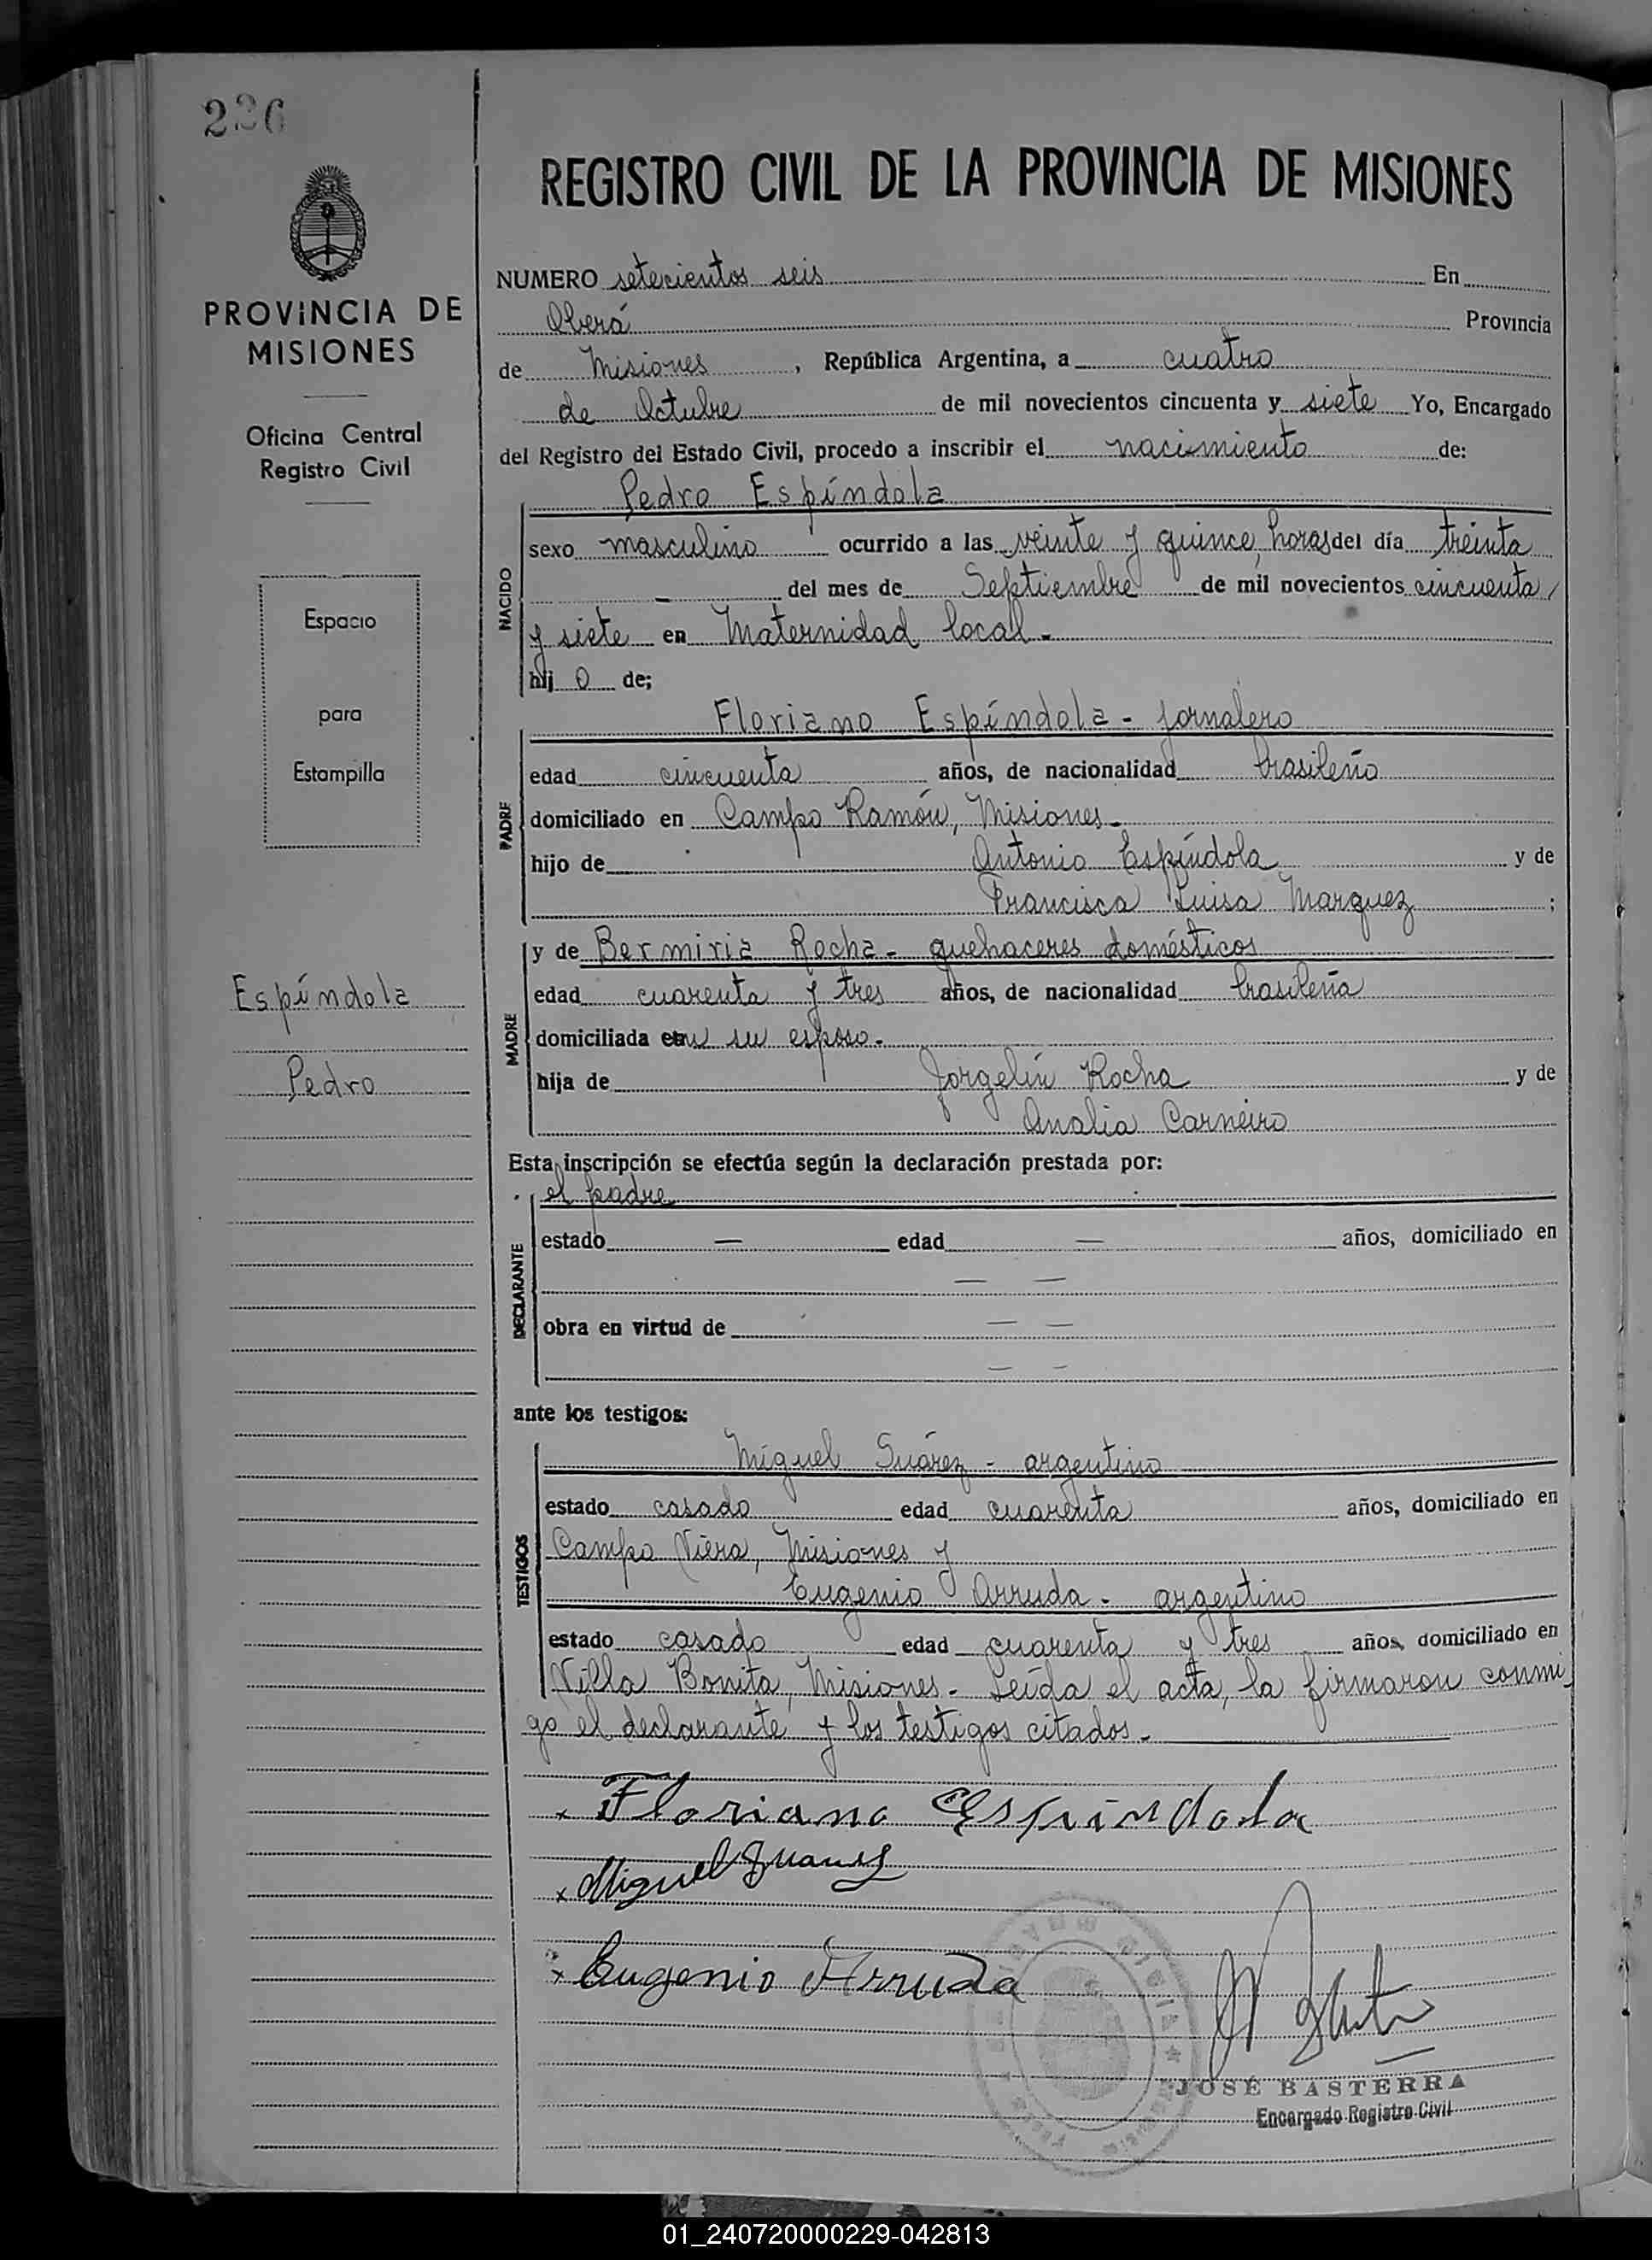 226
PROVINCIA DE
MISIONES
Oficina Central
Registro Civil
Espacio
para
Estampilla
Espíndola
Pedro
REGISTRO CIVIL DE LA PROVINCIA DE MISIONES
NUMERO setecientos seis En
Oberá Provincia
de Misiones, República Argentina, a cuatro
de Octubre de mil novecientos cincuenta y siete Yo, Encargado
del Registro del Estado Civil, procedo a inscribir el nacimiento de:
Pedro Espíndola
NACIDO
sexo masculino ocurrido a las veinte y quince horas del día treinta
— del mes de Septiembre de mil novecientos cincuenta
y siete en Maternidad local.-
hij o de;
Floriano Espíndola - jornalero
PADRE
edad cincuenta años, de nacionalidad brasileño
domiciliado en Campo Ramón, Misiones.-
hijo de Antonio Espíndola y de
Francisca Luisa Marquez ;
y de Bermiria Rocha - quehaceres domésticos
MADRE
edad cuarenta y tres años, de nacionalidad brasileña
domiciliada en su esposo.-
hija de Jorgelín Rocha y de
Analia Carneiro
Esta inscripción se efectúa según la declaración prestada por:
el padre
DECLARANTE
estado — edad — años, domiciliado en
— —
obra en virtud de — —
— —
ante los testigos:
Miguel Suárez - argentino
TESTIGOS
estado casado edad cuarenta años, domiciliado en
Campo Viera, Misiones y
Eugenio Arruda - argentino
estado casado edad cuarenta y tres años, domiciliado en
Villa Bonita, Misiones.- Leída el acta, la firmaron conmi
go el declarante y los testigos citados.-
x Floriano Espindola
x Miguel Suarez
x Eugenio Arruda
JOSÉ BASTERRA
Encargado Registro Civil
01_240720000229-042813